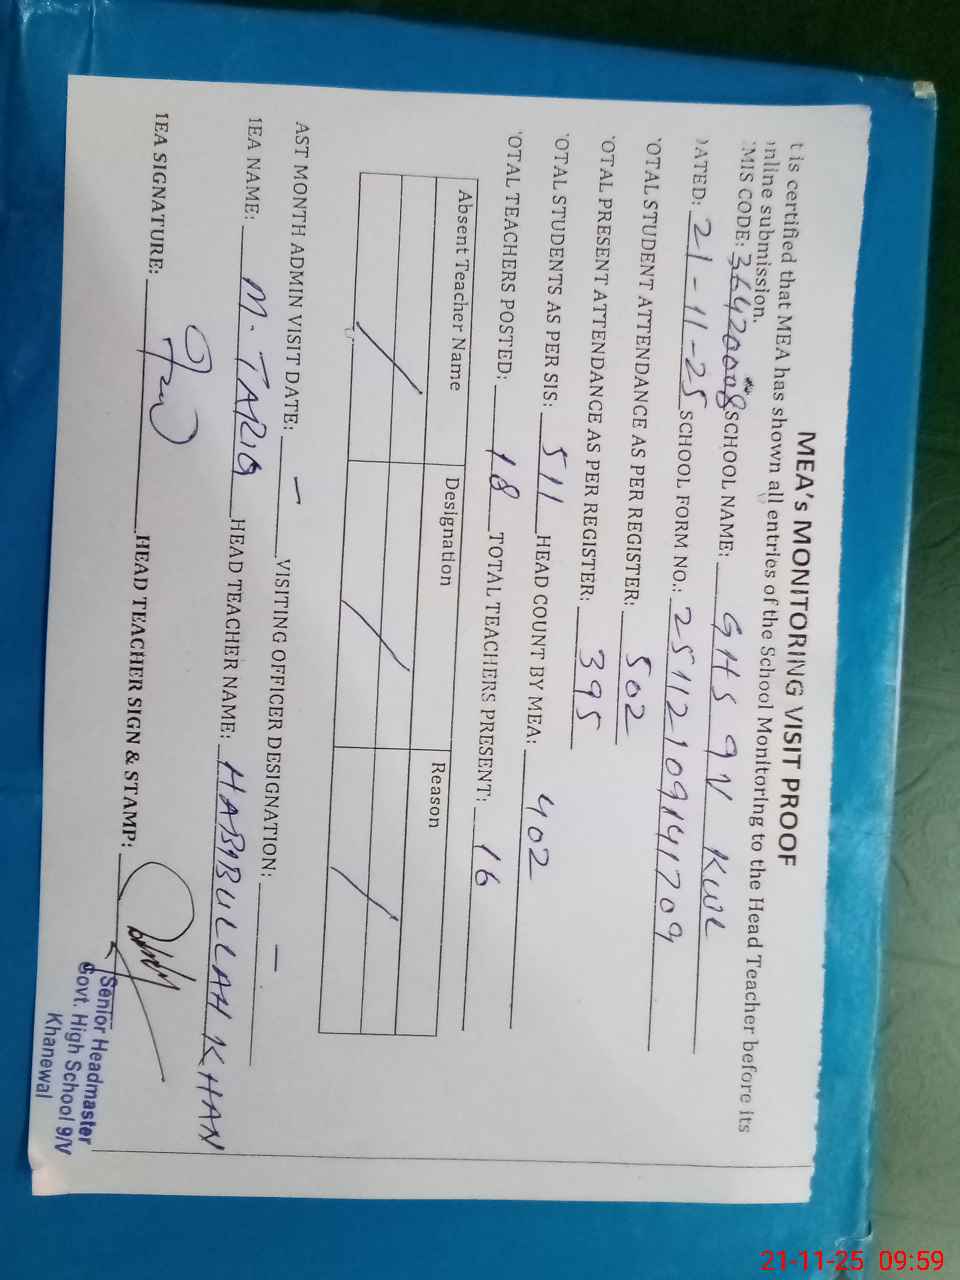 MEA's MONITORING VISIT PROOF
t is certified that MEA has shown all entries of the School Monitoring to the Head Teacher before its
nline submission.
MIS CODE: 36420008 SCHOOL NAME: GHS 9V KWL
DATED: 21-11-25 SCHOOL FORM NO.: 25112109141709
OTAL STUDENT ATTENDANCE AS PER REGISTER: 502
OTAL PRESENT ATTENDANCE AS PER REGISTER: 395
OTAL STUDENTS AS PER SIS: 511 HEAD COUNT BY MEA: 402
OTAL TEACHERS POSTED: 18 TOTAL TEACHERS PRESENT: 16
Absent Teacher Name Designation Reason
/ / /
AST MONTH ADMIN VISIT DATE: — VISITING OFFICER DESIGNATION: —
MEA NAME: M. TARIQ HEAD TEACHER NAME: HABIBULLAH KHAN
MEA SIGNATURE: HEAD TEACHER SIGN & STAMP:
Senior Headmaster
Govt. High School 9/V
Khanewal
21-11-25 09:59